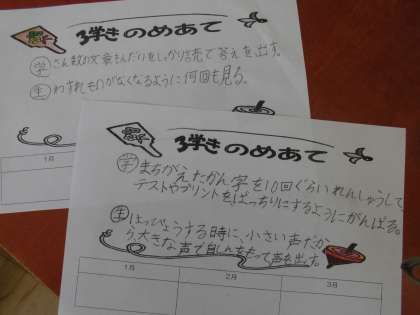 3学きのめあて
学 さん数の文章もんだいをしっかり読んで答えを出す。
生 わすれものがなくなるように何回も見る。
1月
3学きのめあて
学 まちがえたかん字を10回ぐらいれんしゅうして
テストやプリントをばっちりにするようにがんばる。
生 はっぴょうする時に、小さい声だか
ら、大きな声で自しんをもって声を出す。
1月 2月 3月